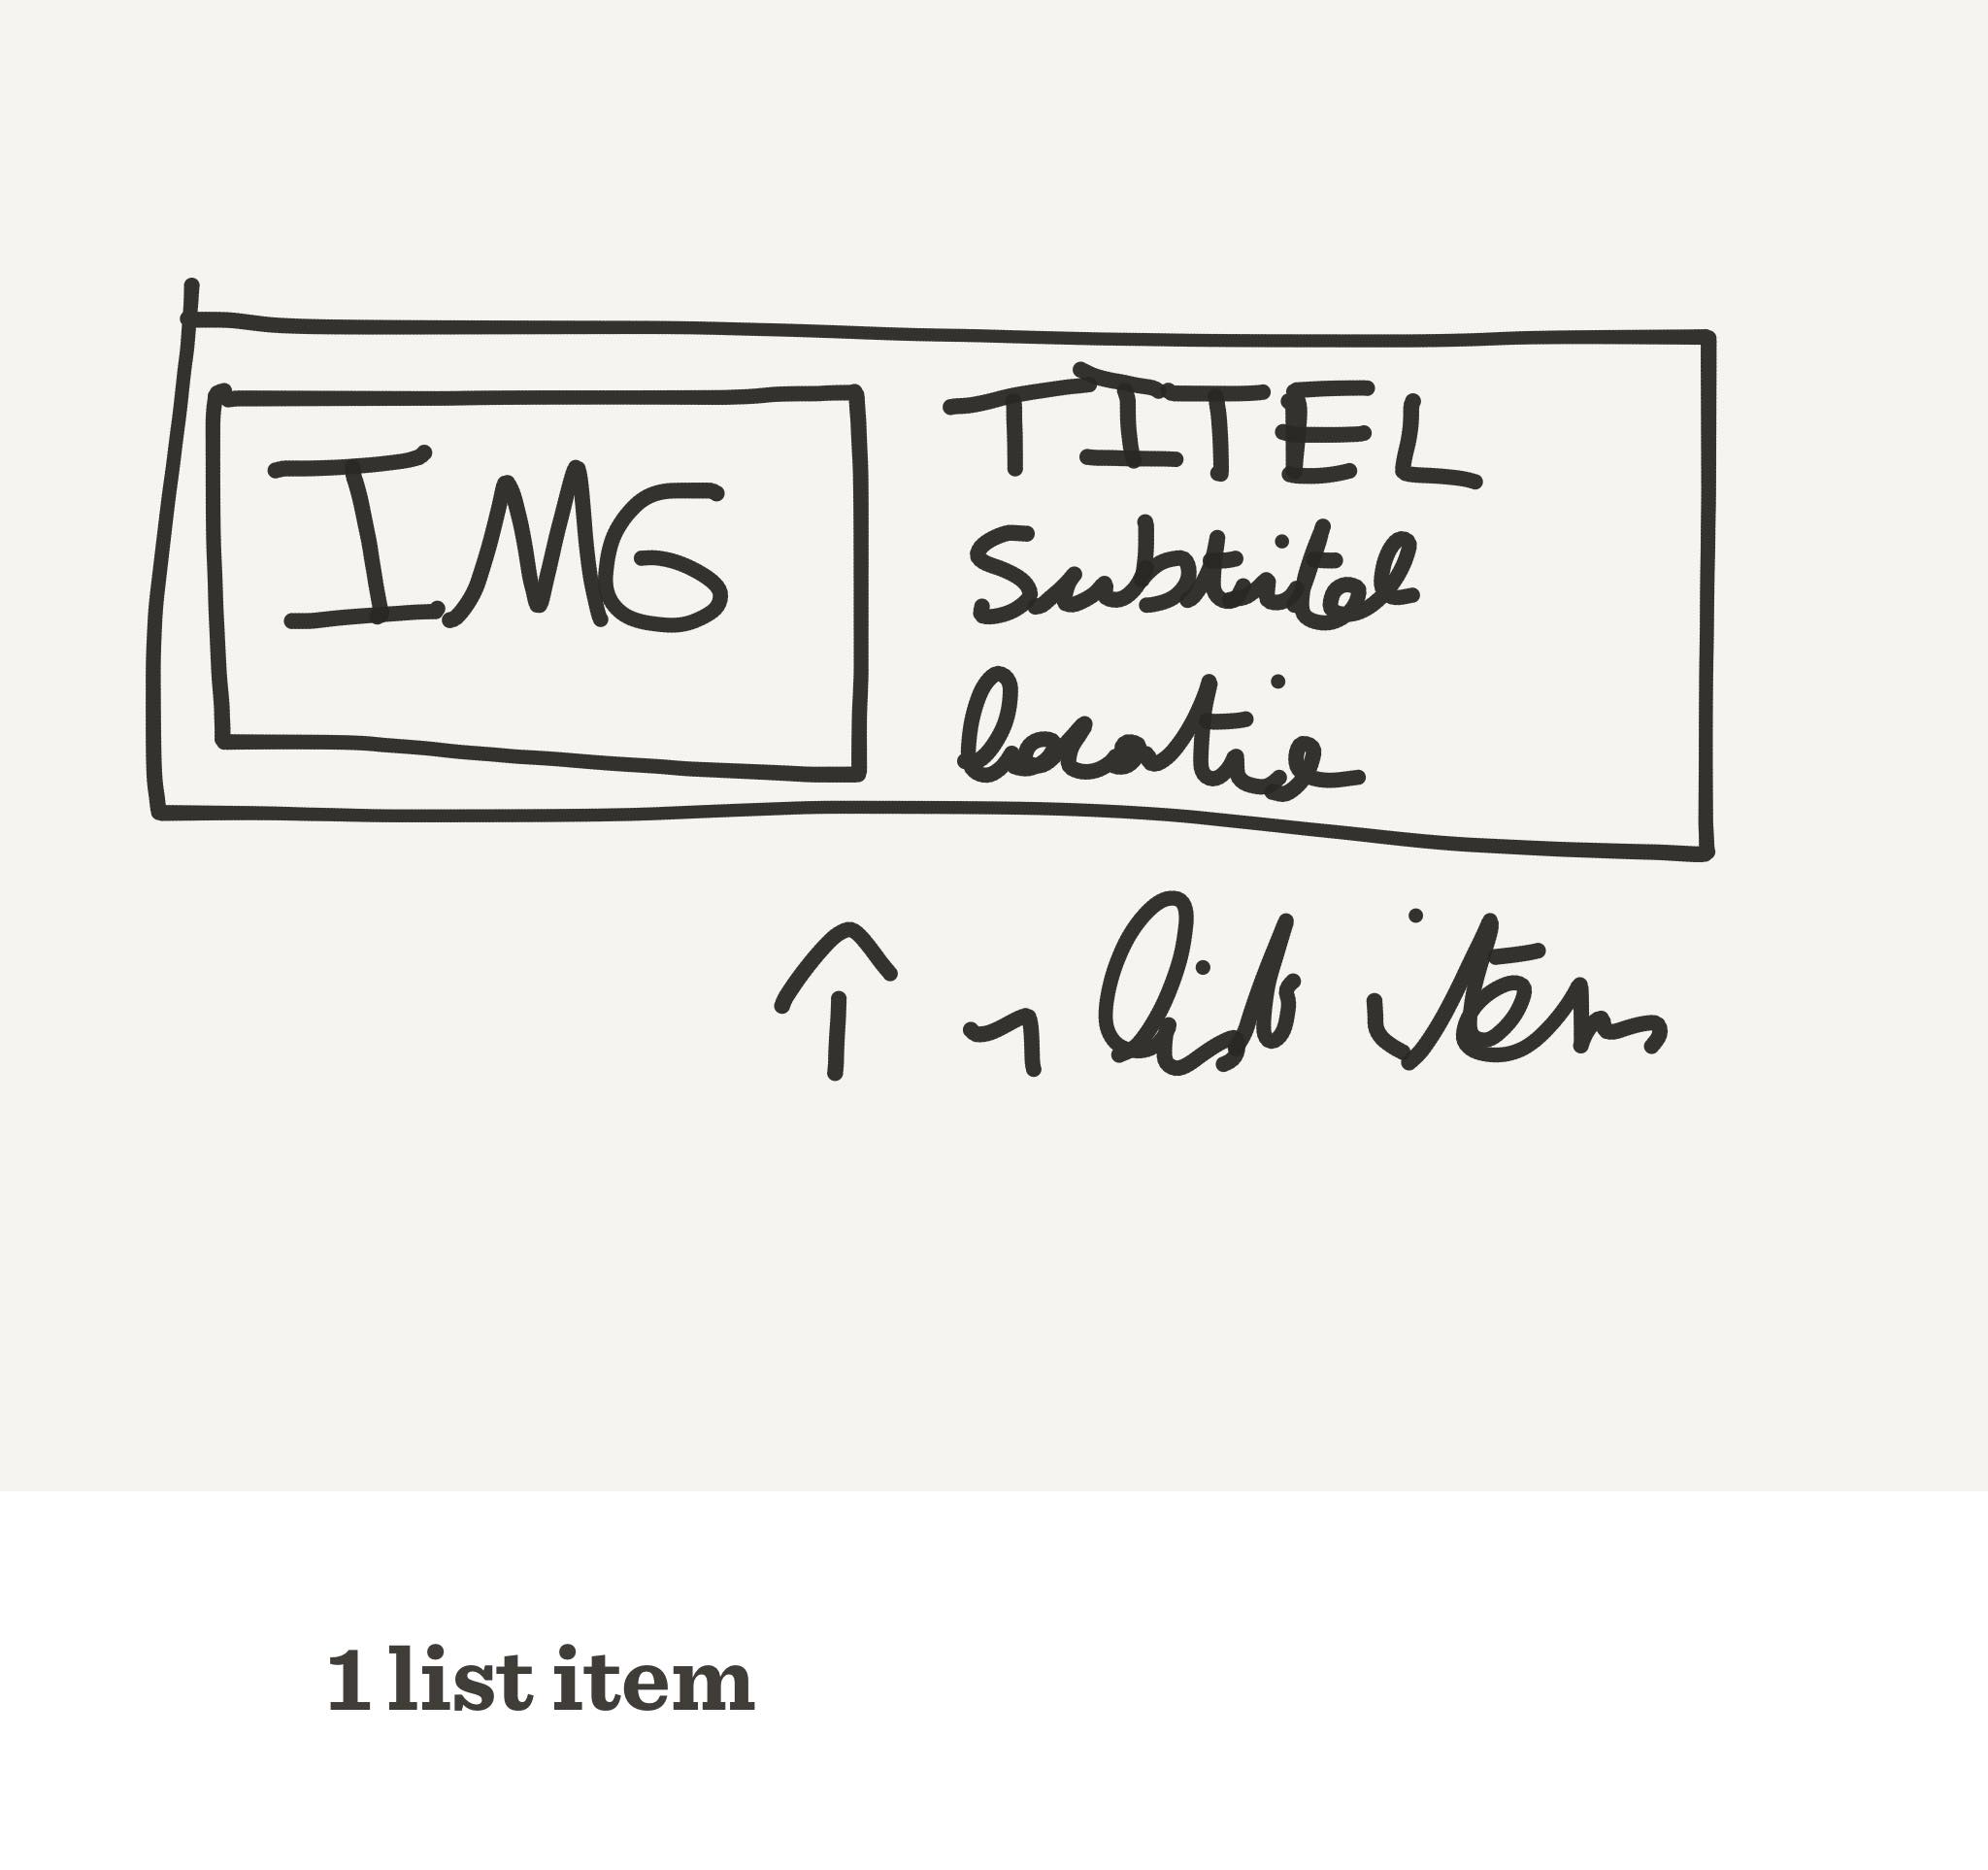 IMG
TITEL
Subtitel
locatie
↑ 1 list item
1 list item